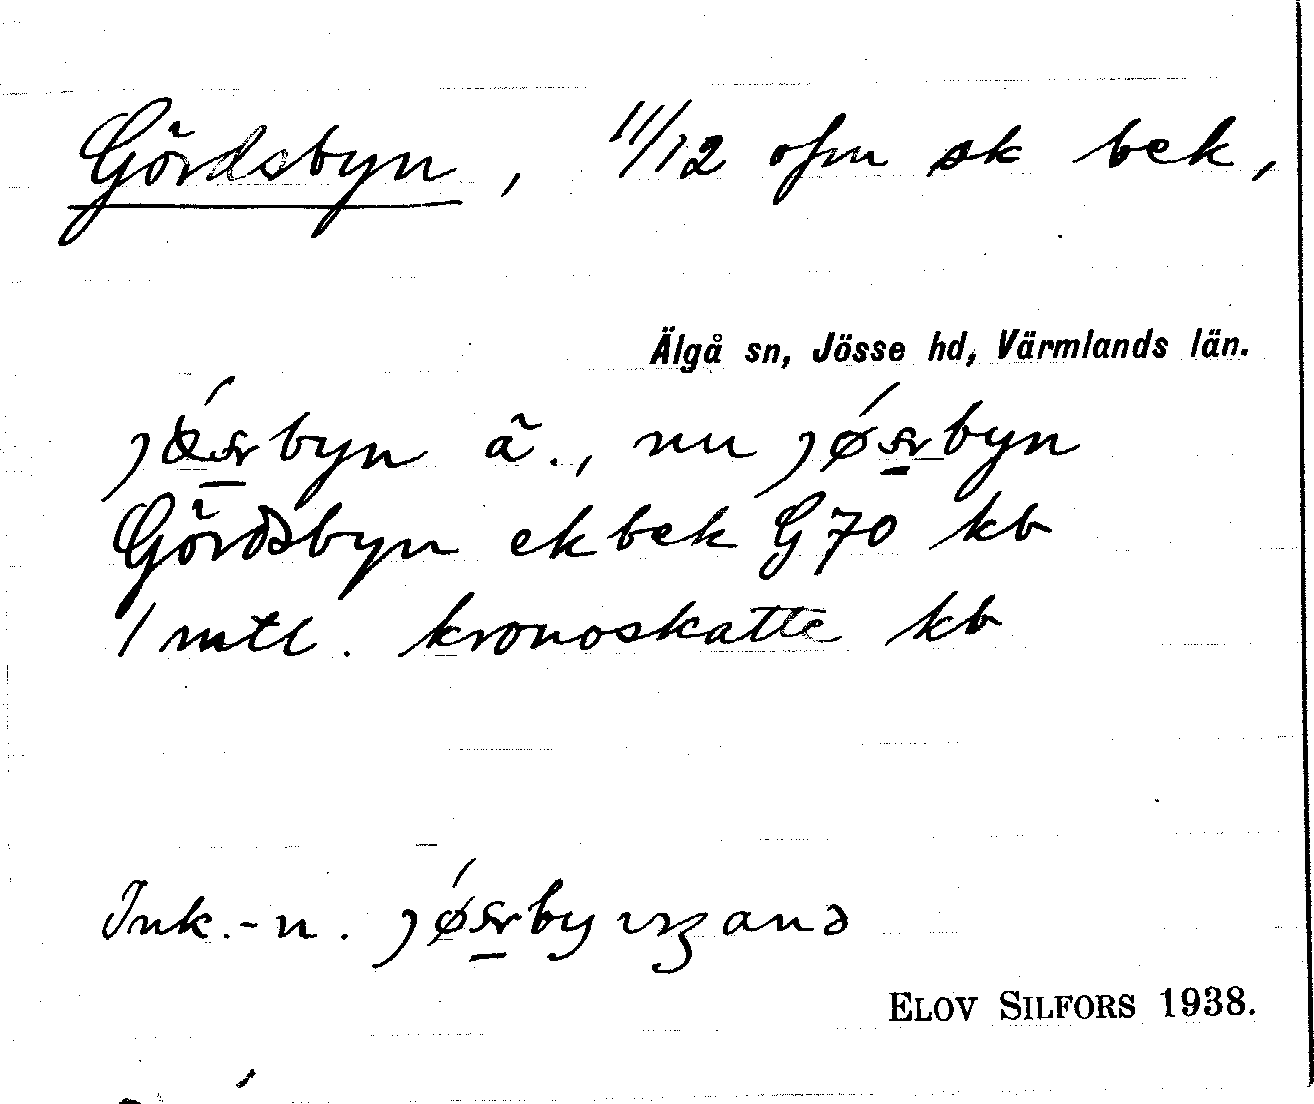 Gördsbyn, 11/12 ofm sk bek,
Älgå sn, Jösse hd, Värmlands län.
byn ä., nu
Gördsbyn ek bek G 70 kb
1 mtl. kronoskatte kb
Ink.-n.
ELOV SILFORS 1938.